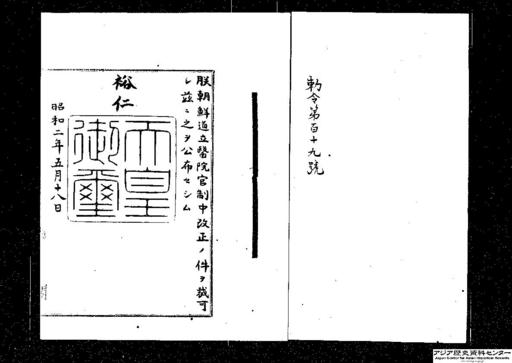 勅令第百十九號
朕朝鮮道立醫院官制中改正ノ件ヲ裁可
シ茲ニ之ヲ公布セシム
裕仁
天皇
御璽
昭和二年五月十八日
アジア歴史資料センター
Japan Center for Asian Historical Records